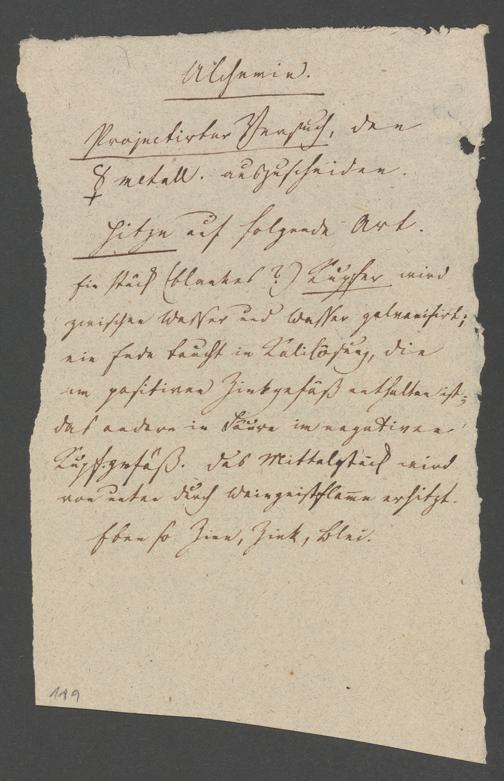 Alchemie.
Projectirter Versuch, den
☿ metall. auszuscheiden.
Hitze auf folgende Art.
Ein Stück (blankes?) Kupfer wird
zwischen Wasser und Wasser galvanisirt;
ein Ende taucht in Kalilösung, die
im positiven Zinkgefäß enthalten ist;
das andere in Säure im negativen
Kupf.gefäß. Das Mittelstück wird
von unten durch Weingeistflamme erhitzt.
Eben so Zinn, Zink, Blei.
119